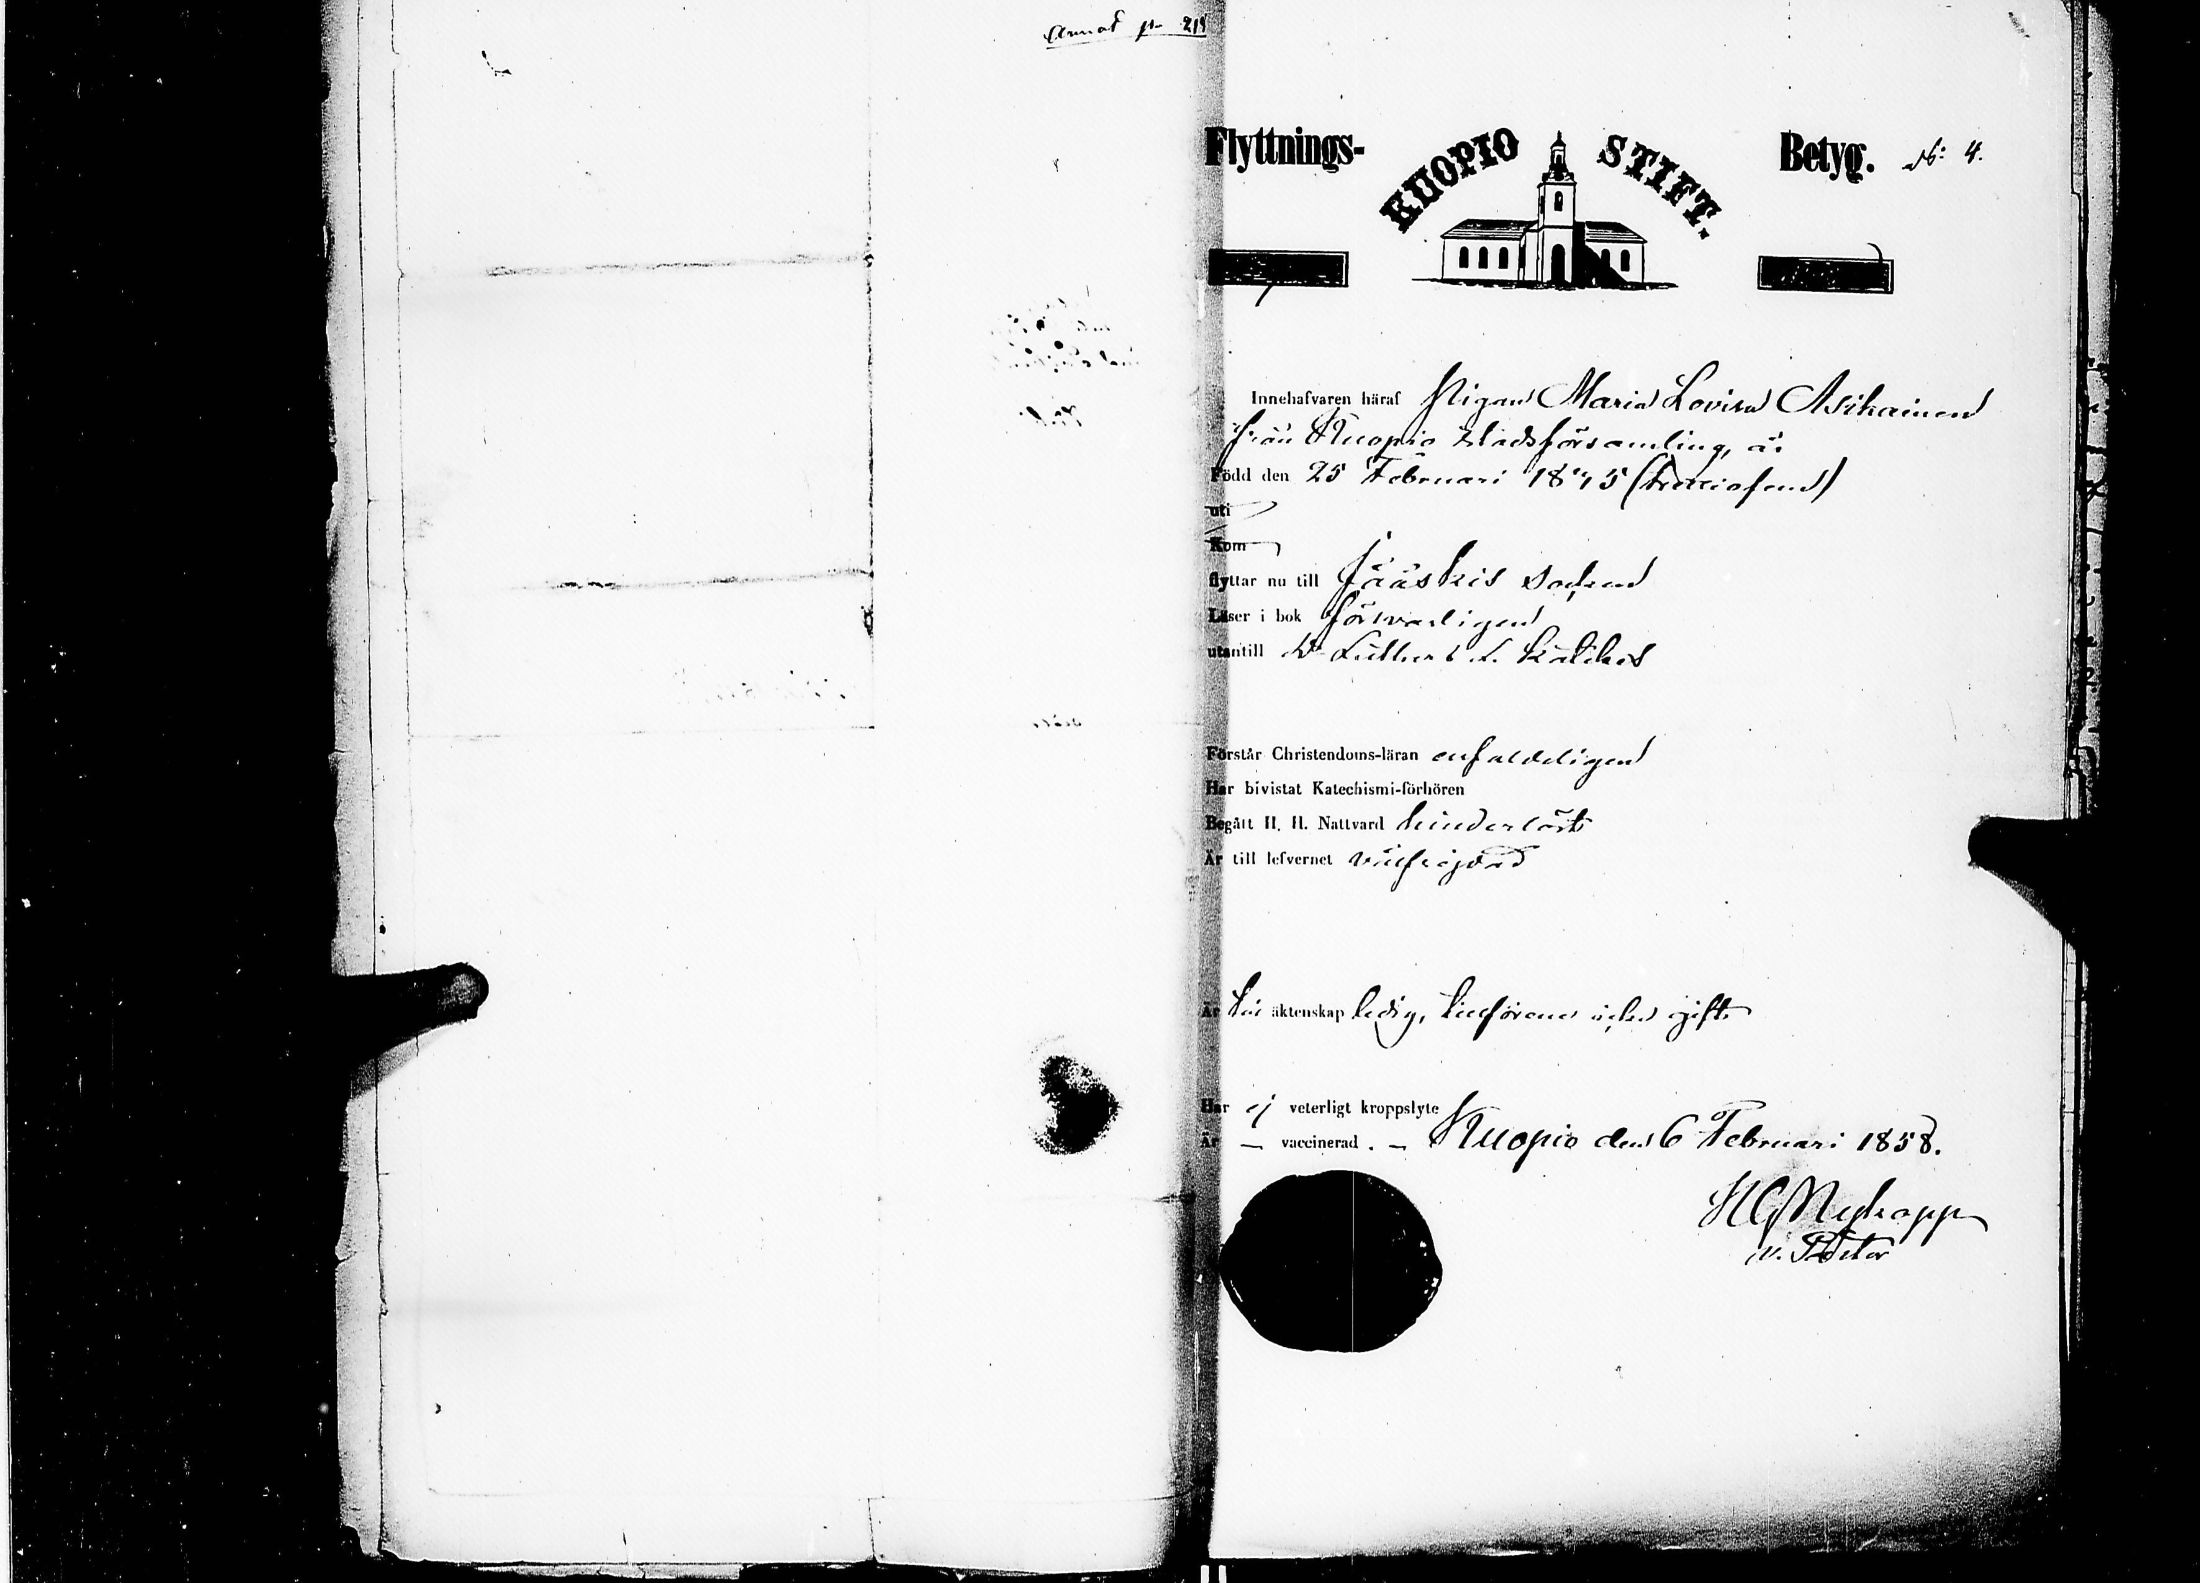 Flyttnings- KUOPIO STIFT. Betyg. No: 4.
Innehafvaren häraf Pigan Maria Lovisa Asikainen
från Kuopio stadsförsamling, är
Född den 25 Februari 18
uti
Kom
flyttar nu till Jääskis socken
Läser i bok försvarligen
utantill Dr Luthers L. Katekes
Förstår Christendoms-läran enfaldeligen
Har bivistat Katechismi-förhören
Begått H. H. Nattvard hinderlöst
Är till lefvernet välfrejdad
Är för äktenskap ledig, gift
Har ej veterligt kroppslyte
Är — vaccinerad. — Kuopio den 6 Februari 1858.
H G Nykopp
v. Pastor